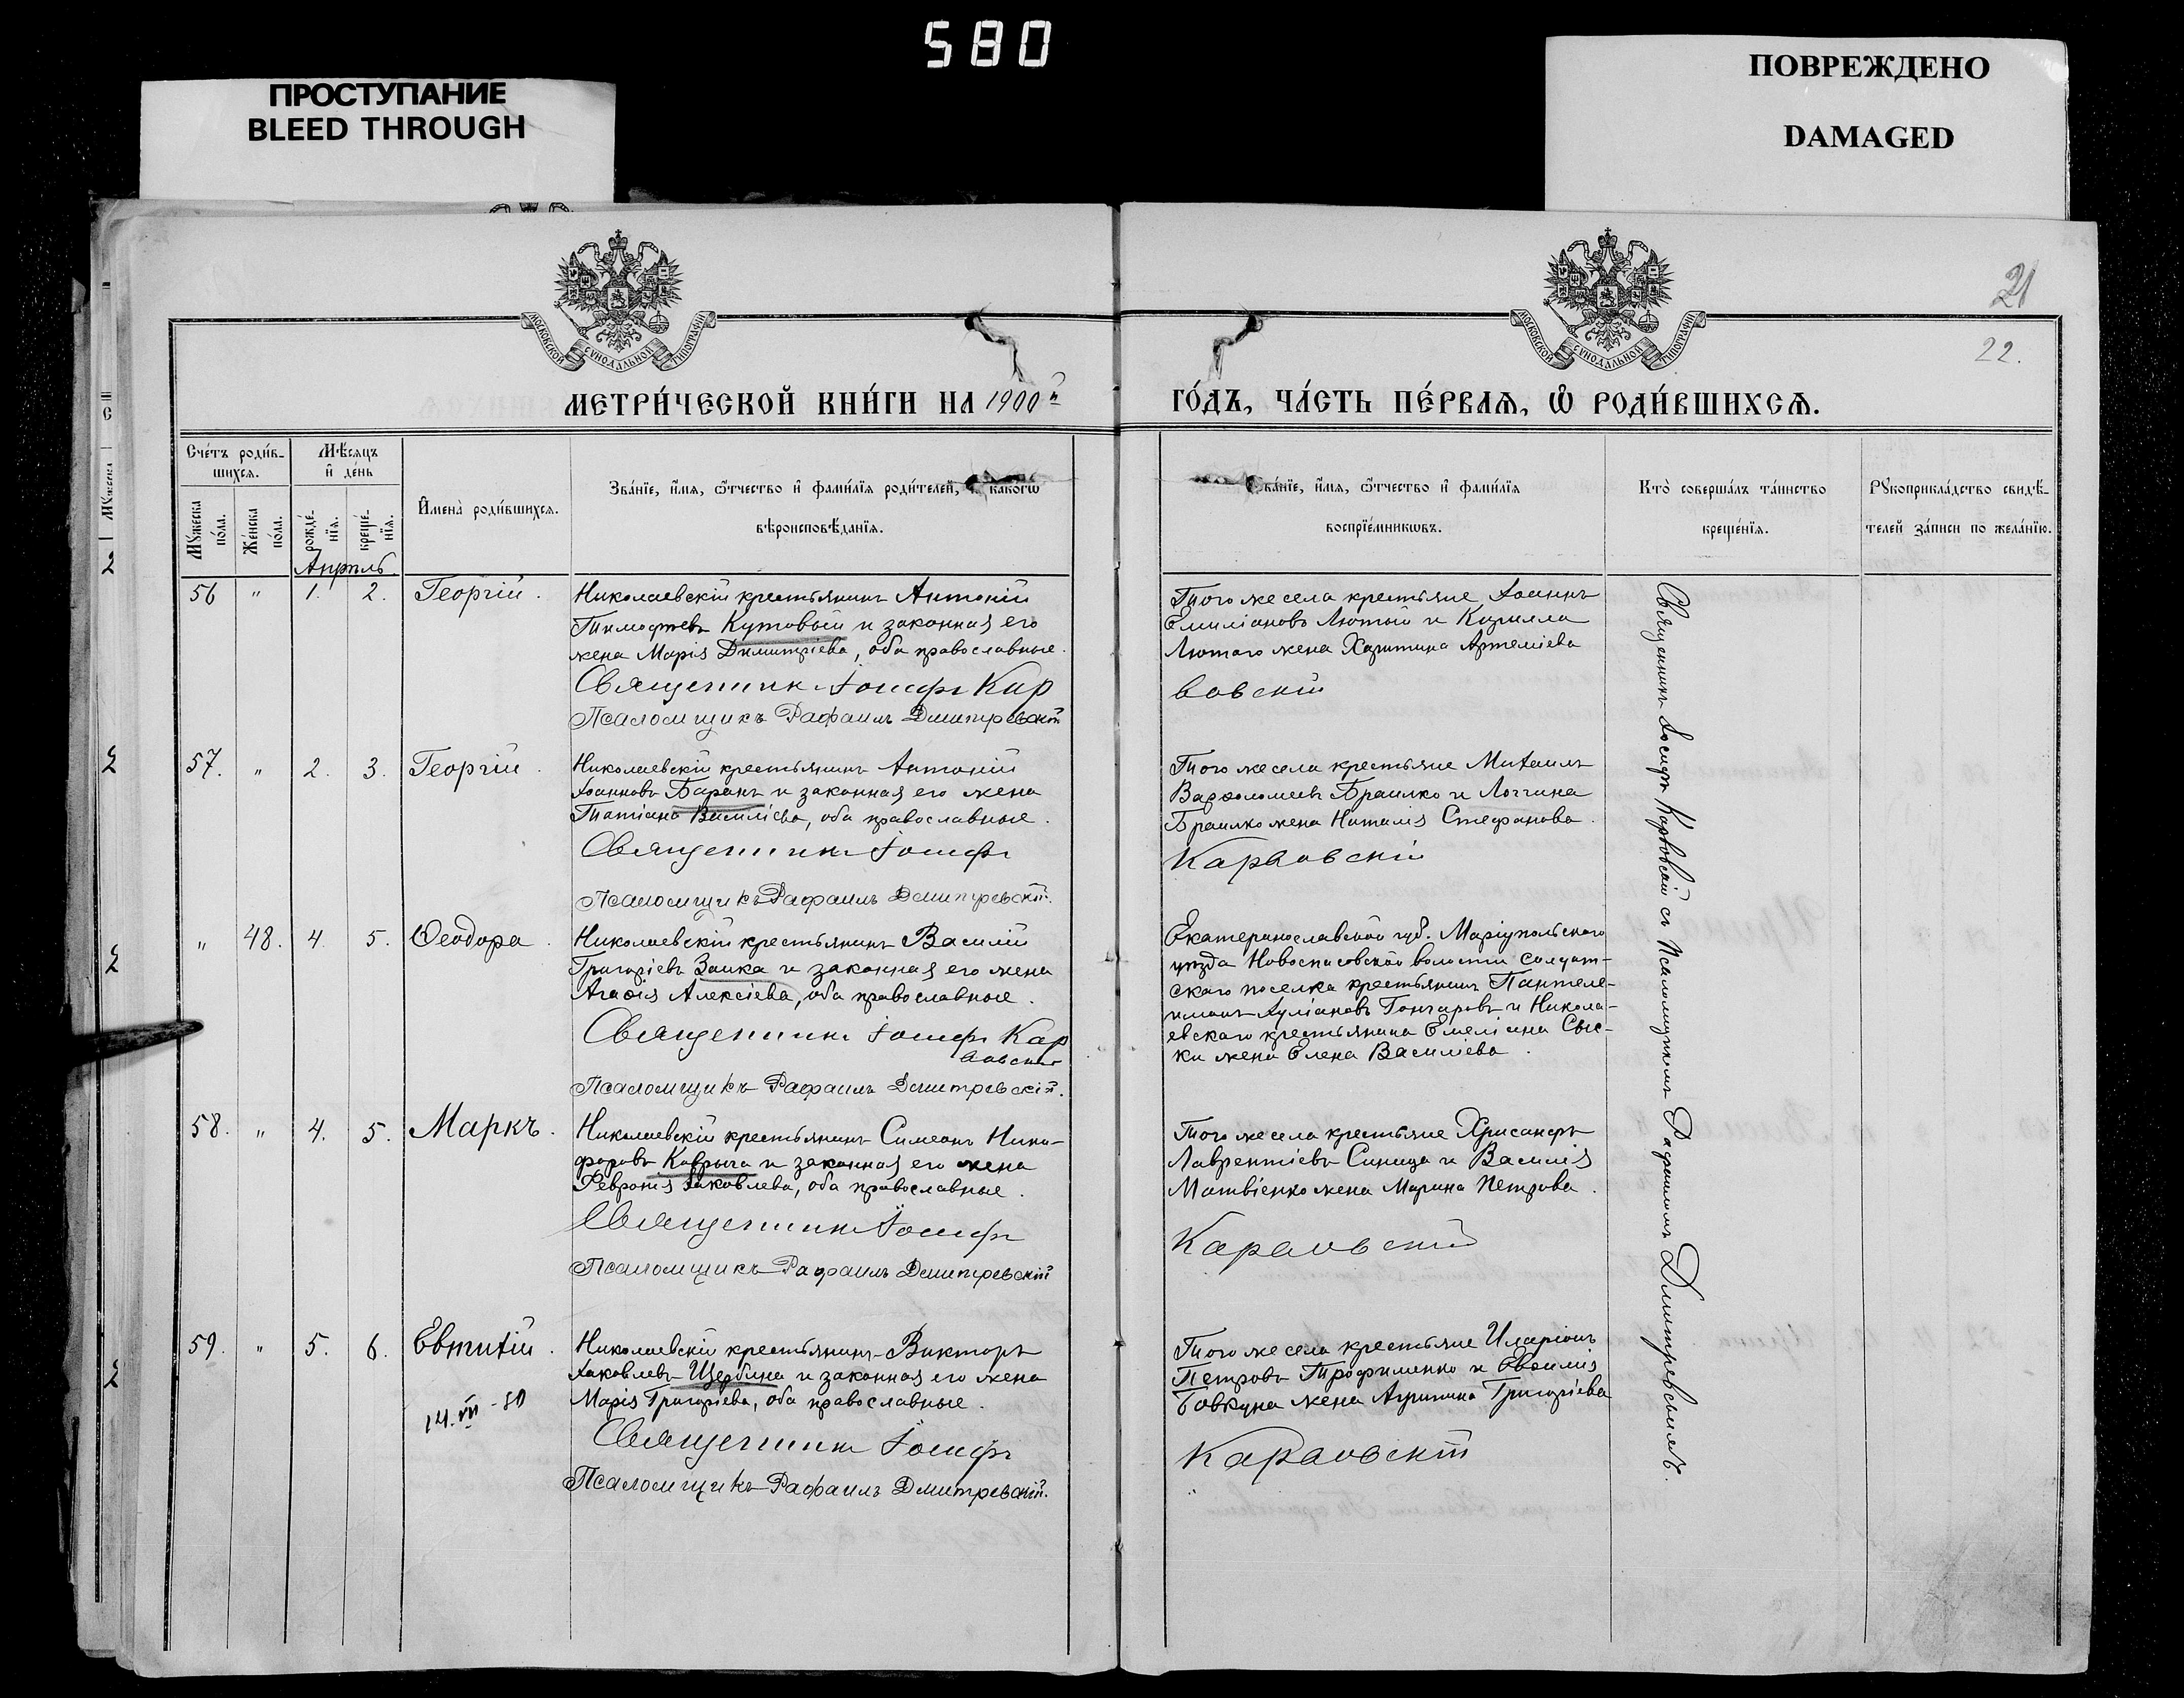 580
ПРОСТУПАНИЕ
BLEED THROUGH
ПОВРЕЖДЕНО
DAMAGED
МОСКОВСКОЙ СѴНОДАЛЬНОЙ ТИПОГРАФІИ
МОСКОВСКОЙ СѴНОДАЛЬНОЙ ТИПОГРАФІИ
21
22.
МЕТРИ́ЧЕСКОЙ КНИ́ГИ НА 1900й
ГО́ДЪ, ЧА́СТЬ ПЕ́РВАѦ, Ѽ РОДИ́ВШИХСѦ.
Сче́тъ роди́в-
шихсѧ.
Мѣсѧцъ
и҆ де́нь
Мꙋ́жеска
по́ла.
Же́нска
по́ла.
рожде́-
нїѧ.
креще́-
нїѧ.
И҆мена̀ роди́вшихсѧ.
Зва́нїе, и҆́мѧ, ѻ҆́тчество и҆ фами́лїѧ роди́телей, и҆ како́гѡ
вѣроисповѣ́данїѧ.
Зва́нїе, и҆́мѧ, ѻ҆́тчество и҆ фами́лїѧ
воспрїе́мникѡвъ.
Кто̀ соверша́лъ та́инство
креще́нїѧ.
Рꙋкоприкла́дство свидѣ́-
телей за́писи по жела́нїю.
Апрѣль
56 " 1. 2. Георгій.
Николаевскій крестьянинъ Антоній
Тимофеевъ Кутовый и законная его
жена Марія Димитріева, оба православные.
Священникъ Іосифъ Кар
Псаломщикъ Рафаилъ Дмитревскій
Того же села крестьяне Іоаннъ
Емиліановъ Лютый и Кирилла
Лютаго жена Харитина Артеміева
повскій
57. " 2. 3. Георгій.
Николаевскій крестьянинъ Антоній
Іоанновъ Баранъ и законная его жена
Татіана Василіева, оба православные.
Священникъ Іосифъ
Псаломщикъ Рафаилъ Дмитревскій.
Того же села крестьяне Михаилъ
Варѳоломеевъ Браилко и Логгина
Браилко жена Наталія Стефанова.
Карповскій
" 48. 4. 5. Ѳеодора.
Николаевскій крестьянинъ Василій
Григоріевъ Заика и законная его жена
Агаѳія Алексіева, оба православные.
Священникъ Іосифъ Кар
повскій
Псаломщикъ Рафаилъ Дмитревскій.
Екатеринославской губ. Маріупольскаго
уѣзда Новоспасовской волости Солдат-
скаго поселка крестьянинъ Пантеле-
имонъ Іуліановъ Гончаровъ и Никола-
евскаго крестьянина Емеліана
жена Елена Василіева.
58. " 4. 5. Маркъ.
Николаевскій крестьянинъ Симеонъ Ники-
форовъ Коврыга и законная его жена
Февронія Іаковлева, оба православные.
Священникъ Іосифъ
Псаломщикъ Рафаилъ Дмитревскій
Того же села крестьяне Хрисанфъ
Лаврентіевъ Синица и Василія
Матвіенко жена Марина Петрова.
Карповскій
59. " 5. 6. Евтихій.
14.VII-80
Николаевскій крестьянинъ Викторъ
Іаковлевъ Щербина и законная его жена
Марія Григоріева, оба православные.
Священникъ Іосифъ
Псаломщикъ Рафаилъ Дмитревскій.
Того же села крестьяне Иларіонъ
Петровъ Трофименко и Евѳимія
Бовкуна жена Агрипина Григоріева
Карповскій
Священникъ Іосифъ Карповскій съ Псаломщикомъ Рафаиломъ Дмитревскимъ.